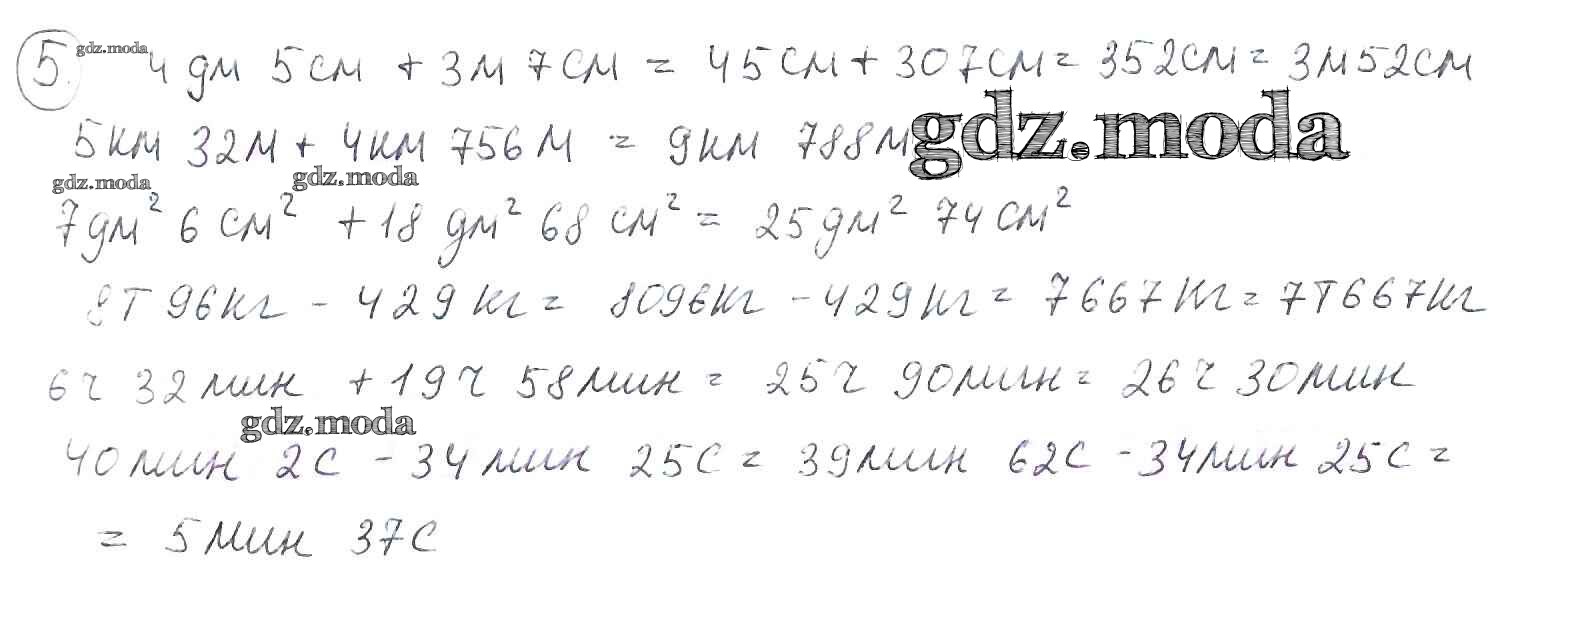 5. gdz.moda 4 дм 5 см + 3 м 7 см = 45 см + 307 см = 352 см = 3 м 52 см
5 км 32 м + 4 км 756 м = 9 км 788 м gdz.moda
gdz.moda gdz.moda
7 дм² 6 см² + 18 дм² 68 см² = 25 дм² 74 см²
8 т 96 кг - 429 кг = 8096 кг - 429 кг = 7667 кг = 7 т 667 кг
6 ч 32 мин + 19 ч 58 мин = 25 ч 90 мин = 26 ч 30 мин
gdz.moda
40 мин 2 с - 34 мин 25 с = 39 мин 62 с - 34 мин 25 с =
= 5 мин 37 с